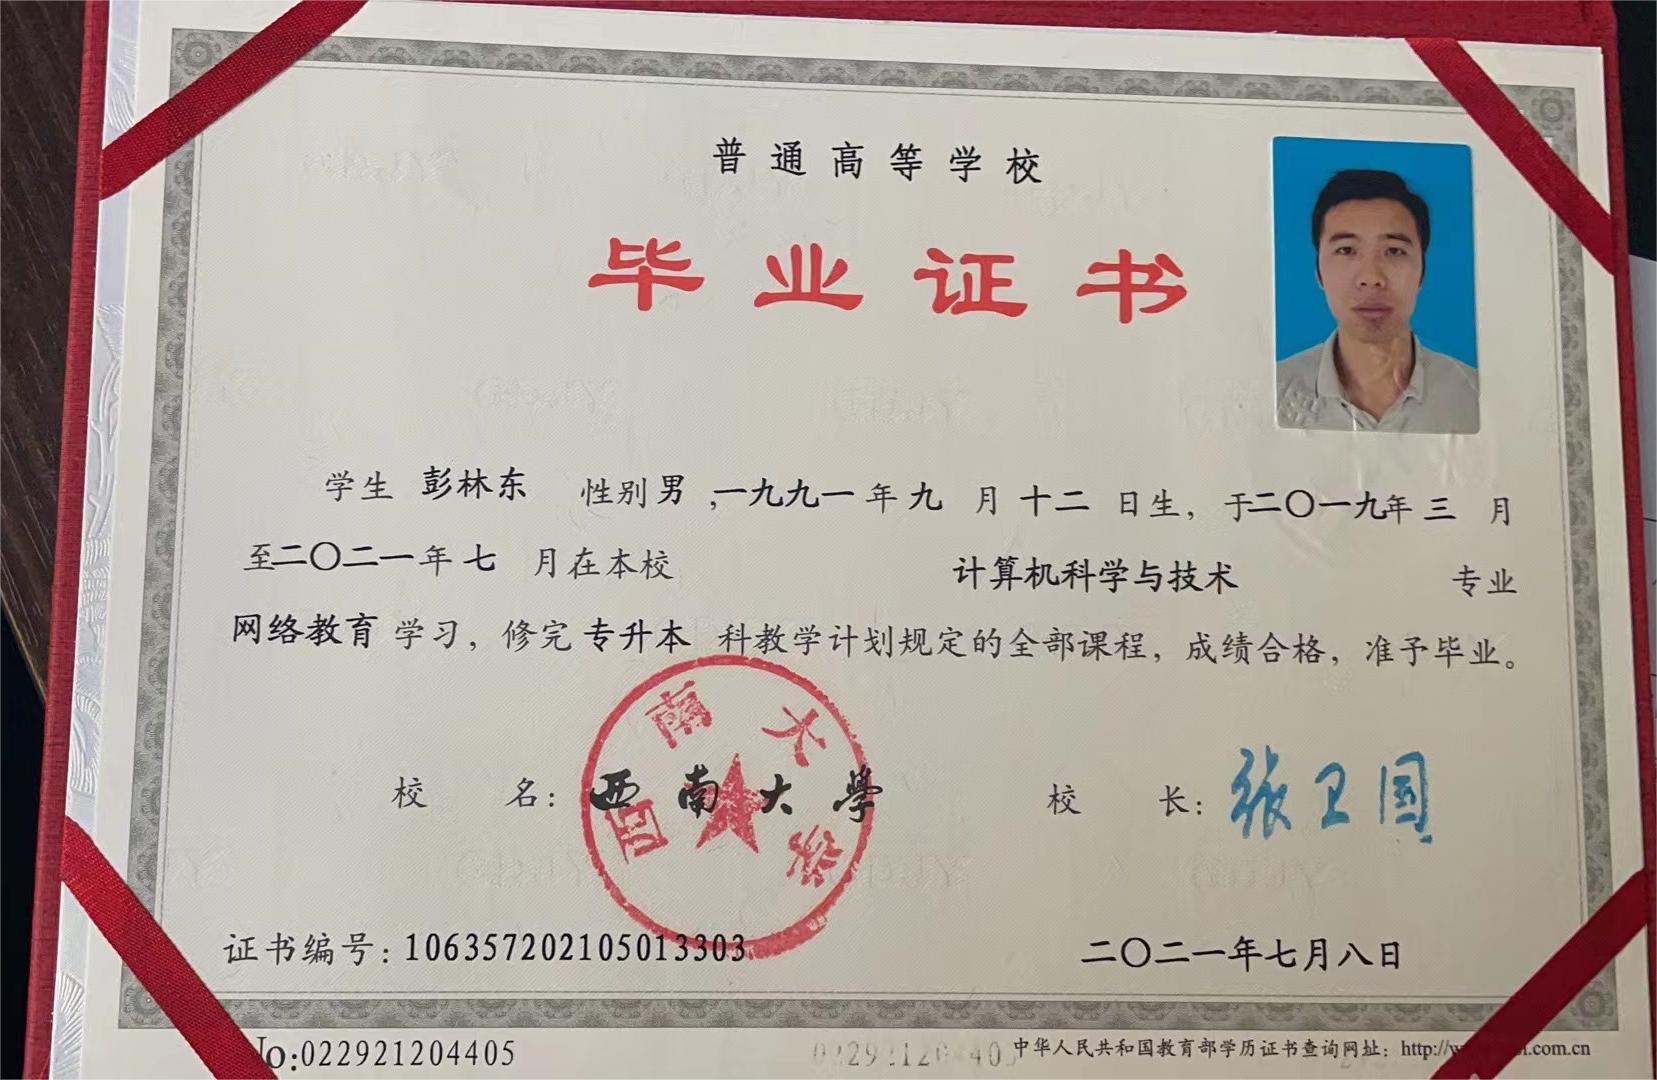 普通高等学校
毕业证书
学生 彭林东 性别 男 ,一九九一 年 九 月 十二 日生，于二〇一九年 三 月
至二〇二一 年 七 月在本校 计算机科学与技术 专业
网络教育 学习，修完 专升本 科教学计划规定的全部课程，成绩合格，准予毕业。
西南大学
校 名：西南大學 校 长：张卫国
证书编号：106357202105013303 二〇二一年七月八日
No:022921204405 中华人民共和国教育部学历证书查询网址：